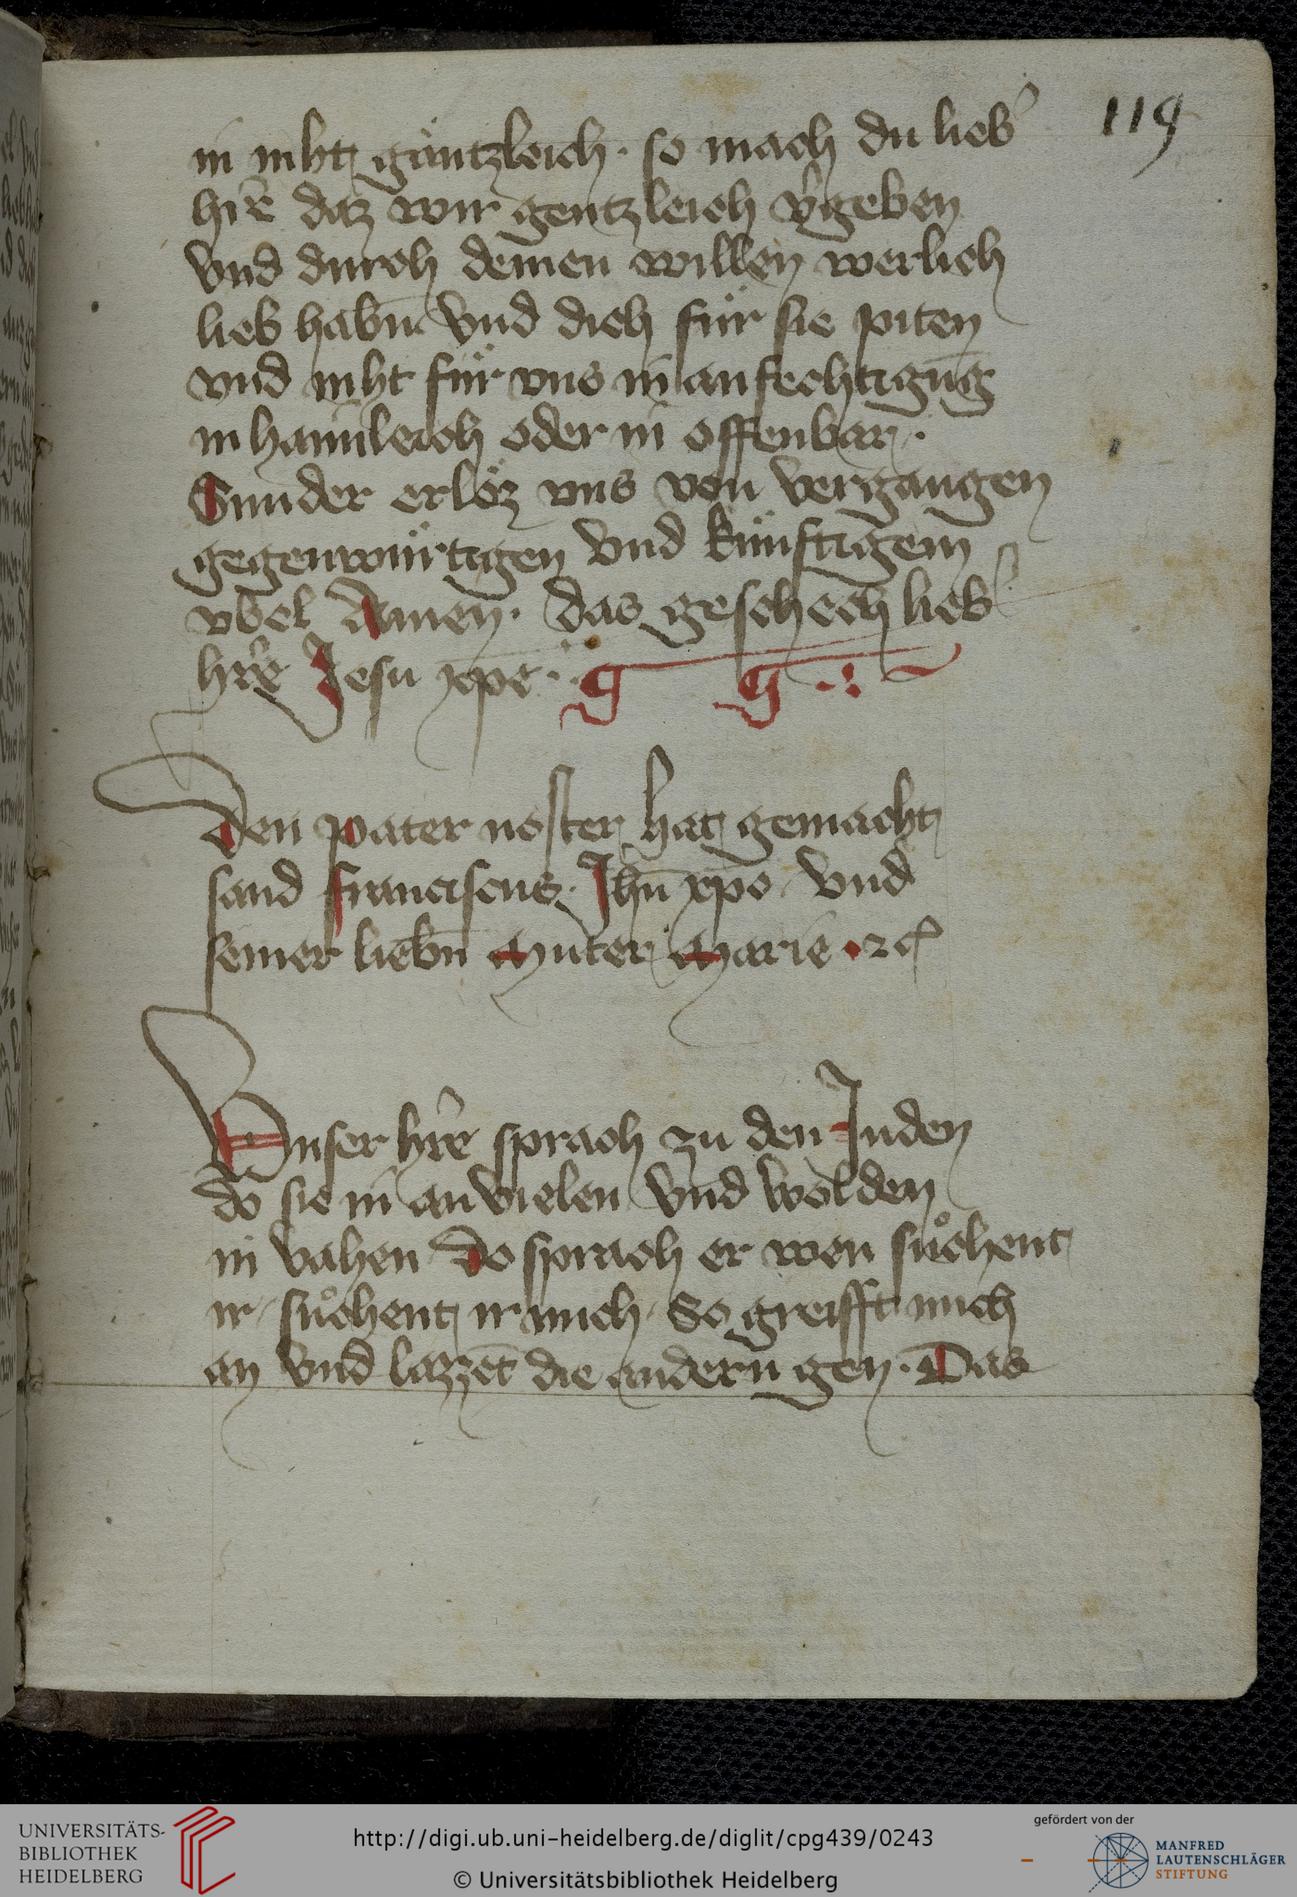 119
in niht gäntzleich · so mach du lieb͛
hr̄re daz wir gentzleich v͛geben
vnd durch deinen willen werlich
lieb habn̄ vnd dich für sie piten
vnd niht für vns in anfechtigūg
in haimleich oder in offenbar ·
Sunder erlöz vns von vergangen
gegenwürtigen vnd künftigem
vbel Amen · das geschech lieb͛
hr̄re Jesu xp̄e ·
Den pater noster hat gemacht
sand franciscus · Jhū xp̄o vnd
seiner liebn̄ Muter Marie · ꝛc
Vnser hr̄re sprach zu den Juden
do sie in an vielen vnd wolden
in vahen Do sprach er wen suͦchent
ir · suͦchent ir mich · So greifft mich
an vnd lazzēt die andern gen · Das
UNIVERSITÄTS-
BIBLIOTHEK
HEIDELBERG
http://digi.ub.uni-heidelberg.de/diglit/cpg439/0243
© Universitätsbibliothek Heidelberg
gefördert von der
MANFRED
LAUTENSCHLÄGER
STIFTUNG